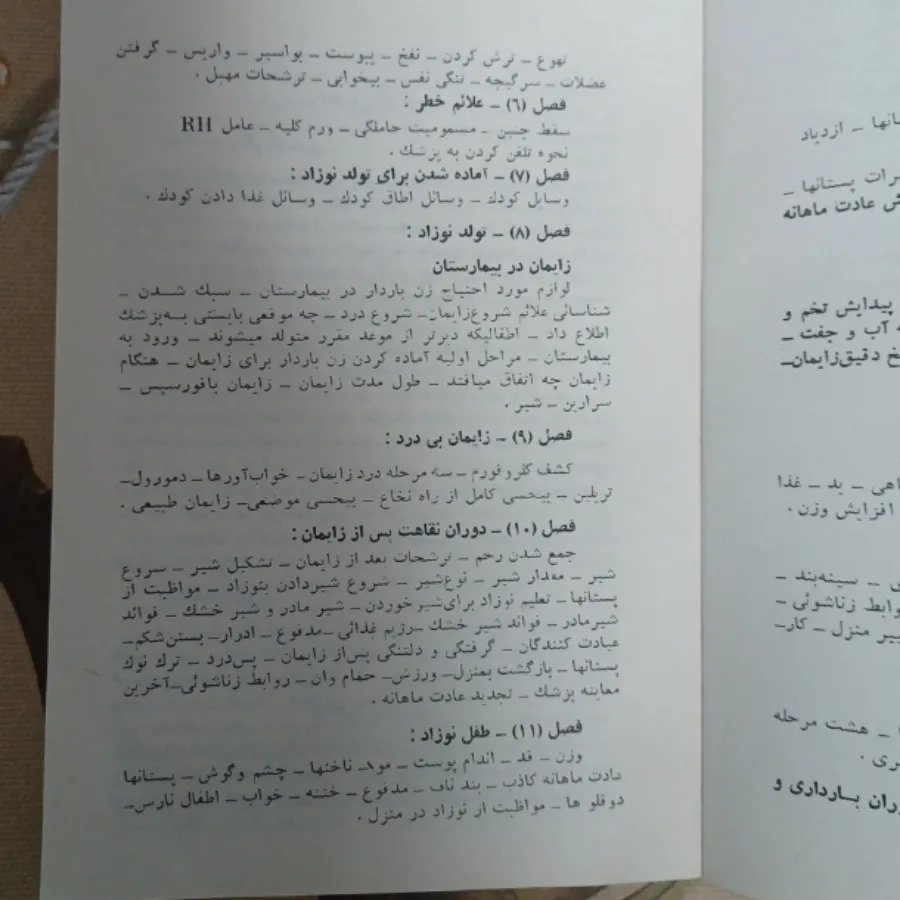 تهوع ـ ترش کردن ـ نفخ ـ یبوست ـ بواسیر ـ واریس ـ گرفتن
عضلات ـ سرگیجه ـ تنگی نفس ـ بیخوابی ـ ترشحات مهبل .
فصل (۶) ـ علائم خطر :
سقط جنین ـ مسمومیت حاملگی ـ ورم کلیه ـ عامل RH
نحوه تلفن کردن به پزشك .
فصل (۷) ـ آماده شدن برای تولد نوزاد :
وسایل کودك ـ وسائل اطاق کودك ـ وسائل غذا دادن کودك .
فصل (۸) ـ تولد نوزاد :
زایمان در بیمارستان
لوازم مورد احتیاج زن باردار در بیمارستان ـ سبك شدن ـ
شناسائی علائم شروع زایمان ـ شروع درد ـ چه موقعی بایستی به‌پزشك
اطلاع داد ـ اطفالیکه دیرتر از موعد مقرر متولد میشوند ـ ورود به
بیمارستان ـ مراحل اولیه آماده کردن زن باردار برای زایمان ـ هنگام
زایمان چه اتفاق میافتد ـ طول مدت زایمان ـ زایمان بافورسپس ـ
سزارین ـ شیر .
فصل (۹) ـ زایمان بی درد :
کشف کلروفورم ـ سه مرحله درد زایمان ـ خواب‌آورها ـ دمورول ـ
تریلین ـ بیحسی کامل از راه نخاع ـ بیحسی موضعی ـ زایمان طبیعی .
فصل (۱۰) ـ دوران نقاهت پس از زایمان :
جمع شدن رحم ـ ترشحات بعد از زایمان ـ تشکیل شیر ـ شروع
شیر ـ مقدار شیر ـ نوع‌شیر ـ شروع شیردادن بنوزاد ـ مواظبت از
پستانها ـ تعلیم نوزاد برای‌شیر خوردن ـ شیر مادر و شیر خشك ـ فوائد
شیرمادر ـ فوائد شیر خشك ـ رژیم غذائی ـ مدفوع ـ ادرار ـ بستن‌شکم ـ
عیادت کنندگان ـ گرفتگی و دلتنگی پس‌از زایمان ـ پس‌درد ـ ترك نوك
پستانها ـ بازگشت بمنزل ـ ورزش ـ حمام وان ـ روابط زناشوئی ـ آخرین
معاینه پزشك ـ تجدید عادت ماهانه .
فصل (۱۱) ـ طفل نوزاد :
وزن ـ قد ـ اندام پوست ـ مو ـ ناخنها ـ چشم وگوش ـ پستانها
عادت ماهانه کاذب ـ بند ناف ـ مدفوع ـ ختنه ـ خواب ـ اطفال نارس ـ
دوقلو ها ـ مواظبت از نوزاد در منزل .
ـ ازدیاد
پستانها ـ
عادت ماهانه
پیدایش تخم و
آب و جفت ـ
دقیق‌زایمان ـ
ـ ید ـ غذا
افزایش وزن .
ـ سینه‌بند ـ
زناشوئی ـ
منزل ـ کار ـ
ـ هشت مرحله
بارداری و